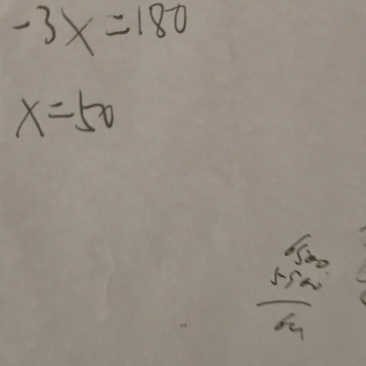 -3x=180
x=50
6500
5500